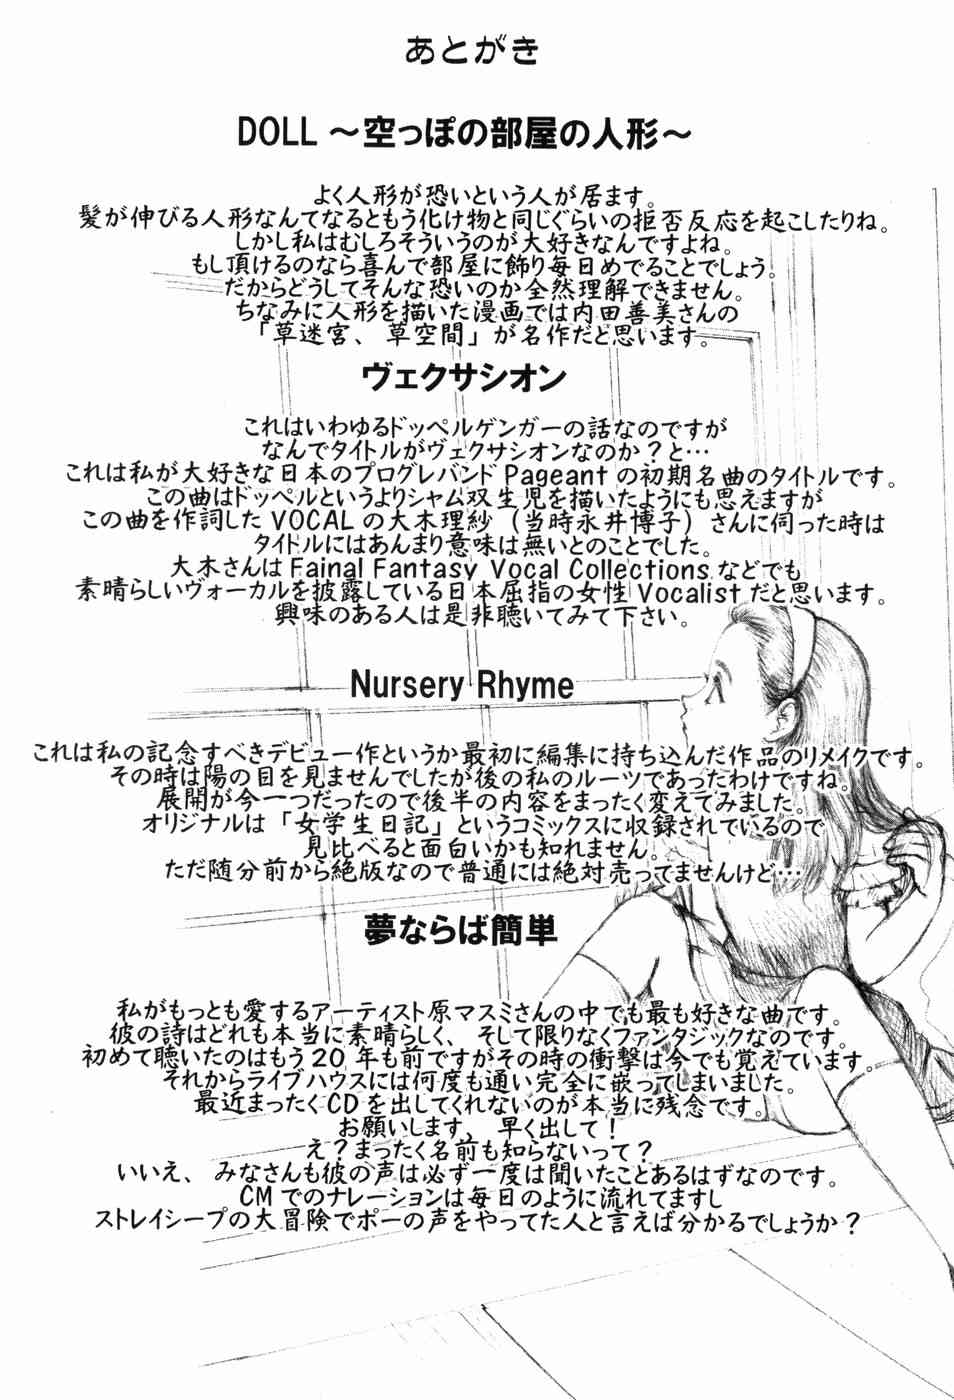 あとがき
DOLL ～空っぽの部屋の人形～
よく人形が恐いという人が居ます。
髪が伸びる人形なんてなるともう化け物と同じぐらいの拒否反応を起こしたりね。
しかし私はむしろそういうのが大好きなんですよね。
もし頂けるのなら喜んで部屋に飾り毎日めでることでしょう。
だからどうしてそんな恐いのか全然理解できません。
ちなみに人形を描いた漫画では内田善美さんの
「草迷宮、草空間」が名作だと思います。
ヴェクサシオン
これはいわゆるドッペルゲンガーの話なのですが
なんでタイトルがヴェクサシオンなのか？と…
これは私が大好きな日本のプログレバンド Pageant の初期名曲のタイトルです。
この曲はドッペルというよりシャム双生児を描いたようにも思えますが
この曲を作詞した VOCAL の大木理紗（当時永井博子）さんに伺った時は
タイトルにはあんまり意味は無いとのことでした。
大木さんは Fainal Fantasy Vocal Collections などでも
素晴らしいヴォーカルを披露している日本屈指の女性 Vocalist だと思います。
興味のある人は是非聴いてみて下さい。
Nursery Rhyme
これは私の記念すべきデビュー作というか最初に編集に持ち込んだ作品のリメイクです。
その時は陽の目を見ませんでしたが後の私のルーツであったわけですね。
展開が今一つだったので後半の内容をまったく変えてみました。
オリジナルは「女学生日記」というコミックスに収録されているので
見比べると面白いかも知れません。
ただ随分前から絶版なので普通には絶対売ってませんけど…
夢ならば簡単
私がもっとも愛するアーティスト原マスミさんの中でも最も好きな曲です。
彼の詩はどれも本当に素晴らしく、そして限りなくファンタジックなのです。
初めて聴いたのはもう 20 年も前ですがその時の衝撃は今でも覚えています。
それからライブハウスには何度も通い完全に嵌ってしまいました。
最近まったく CD を出してくれないのが本当に残念です。
お願いします、早く出して！
え？まったく名前も知らないって？
いいえ、みなさんも彼の声は必ず一度は聞いたことあるはずなのです。
CM でのナレーションは毎日のように流れてますし
ストレイシープの大冒険でポーの声をやってた人と言えば分かるでしょうか？